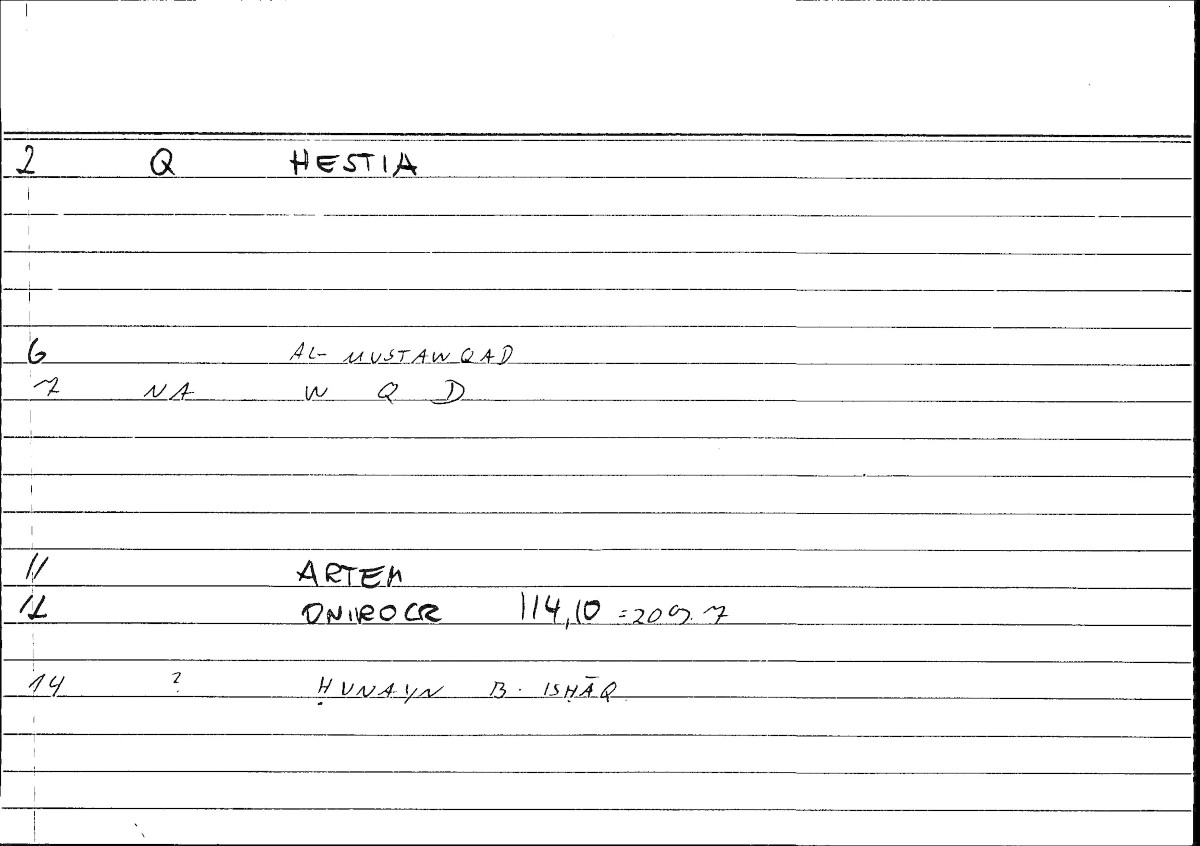 2 Q HESTIA
6 AL-MUSTAWQAD
7 NA W Q D
11 ARTEM
12 ONIROCR 114,10 =209.7
14 ? ḤUNAYN B. ISḤĀQ